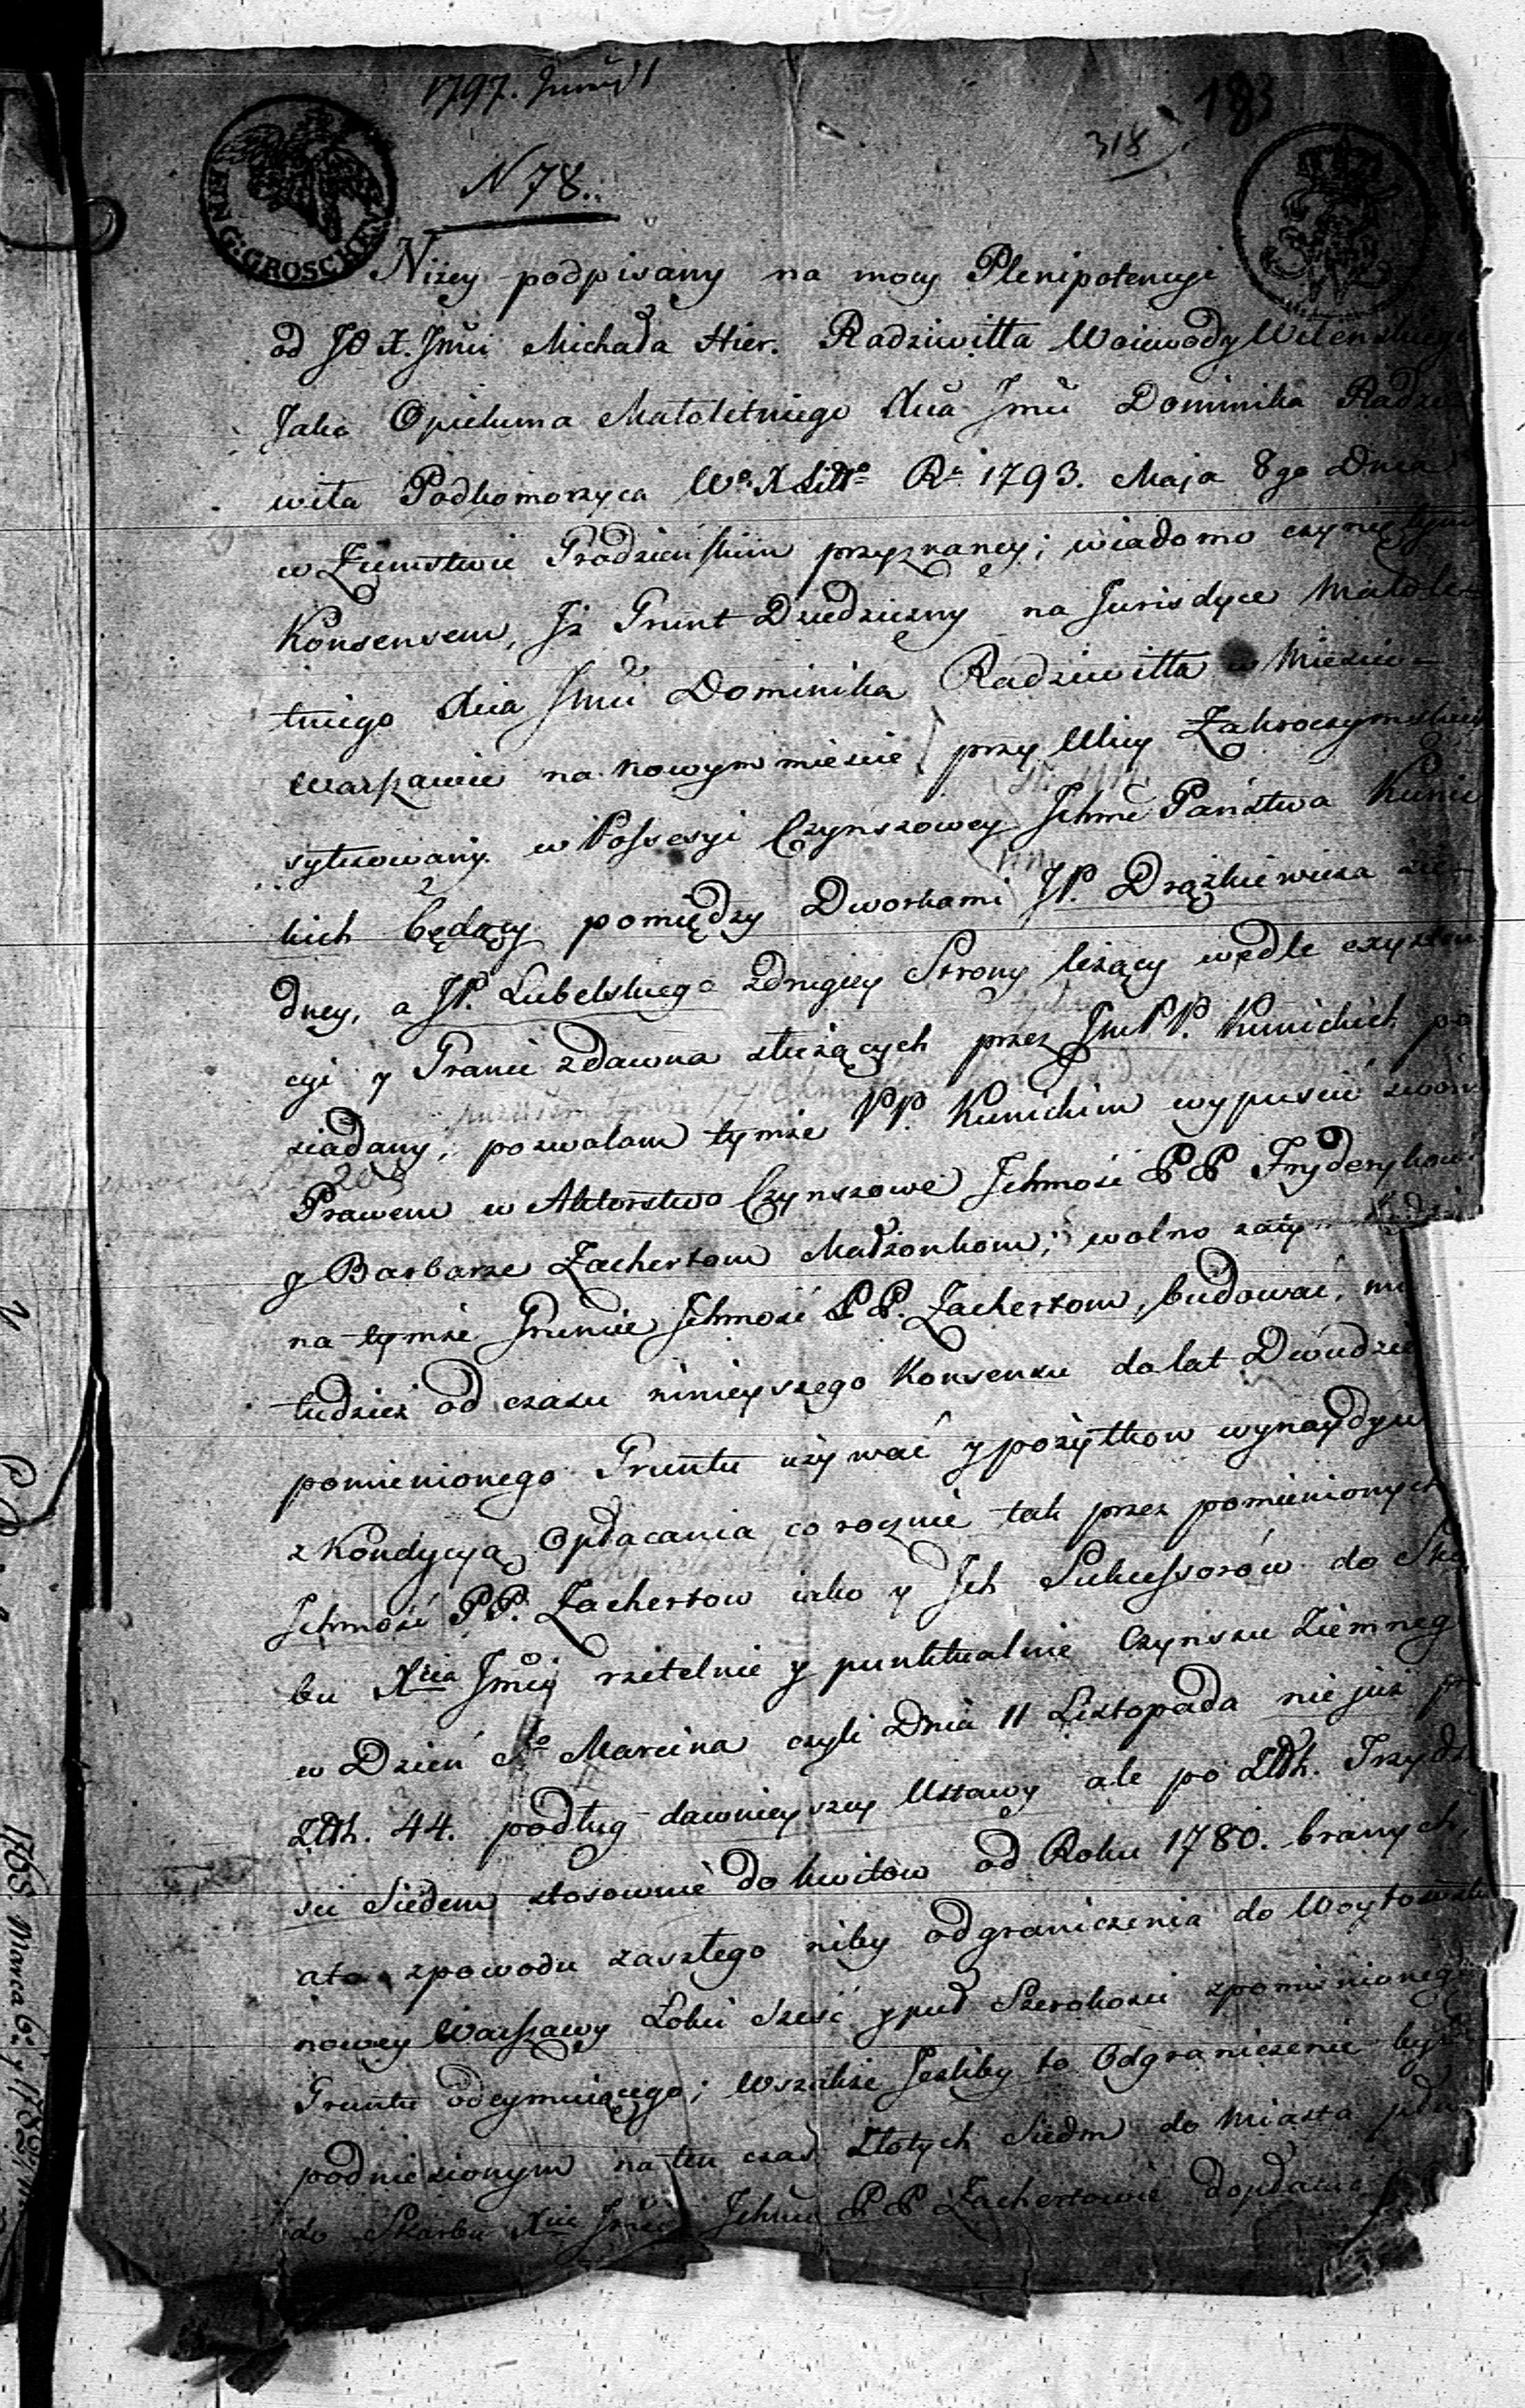 1797. Junij 1
183
318
N 78.
EIN G: GROSCHEN
Niżey podpisany na mocy Plenipotencyi
od JO X. Jmći Michała Hier. Radziwiłła Woiewody Wilenskiego
Jako Opiekuna Małoletniego Xcia Jmći Dominika Radzi
wiła Podkomorzyca Wo X Litto Ru 1793. Maja 8go Dnia
w Ziemstwie Grodzieńskim przyznaney; wiadomo czynię tym
Konsensem, Iż Grunt Dziedziczny na Jurisdyce Małole-
tniego Xcia Jmći Dominika Radziwiłła w Mieście
Warszawie na nowym mieście przy Ulicy Zakroczymskiey
sytuowany w Possesyi Czynszowey Ichmć Państwa Kunic
kich będący pomiędzy Dworkami JP. Drążkiewicza zie-
dney, a JP. Lubelskiego zdrugiey Strony leżący wedle
cyi y Granic zdawna służących przez Jm PP. Kunickich po
siadany, pozwalam tymże PP. Kunickim wypuścić
Prawem w Aktorstwo Czynszowe Ichmość PP Fryderykowi
y Barbarze Zachertom Małżonkom; wolno zatym
na tymże Gruncie Ichmość PP. Zachertom, budować,
tudzież od czasu ninieyszego Konsensu do lat Dwudzie
pomienionego Gruntu używać y pożytkow wynaydyw
z Kondycyą Opłacania corocznie tak przez pomienionych
Ichmość PP. Zachertow iako y Ich Sukcessorów do Ska
bu Xcia Jmći rzetelnie y punktualnie Czynszu Ziemnego
w Dzień Sgo Marcina czyli Dnia 11 Listopada nie już p
Złth. 44. podług dawnieyszey Ustawy ale po Złth. Trzydz
ści Siedem stosownie do kwitów od Roku 1780. branych,
a to zpowodu zaszłego niby odgraniczenia do Woytowstw
nowey Warszawy Łokci Sześć y puł Szerokości zpomienionego
Gruntu odeymuiącego; Wszakże Jesliby to Odgraniczenie było
podniesionym na ten czas Złotych Siedm do Miasta
do Skarbu Xcia Jmći Ichmć PP Zachertowie dopłacać
1768. Marca 6. y 1782